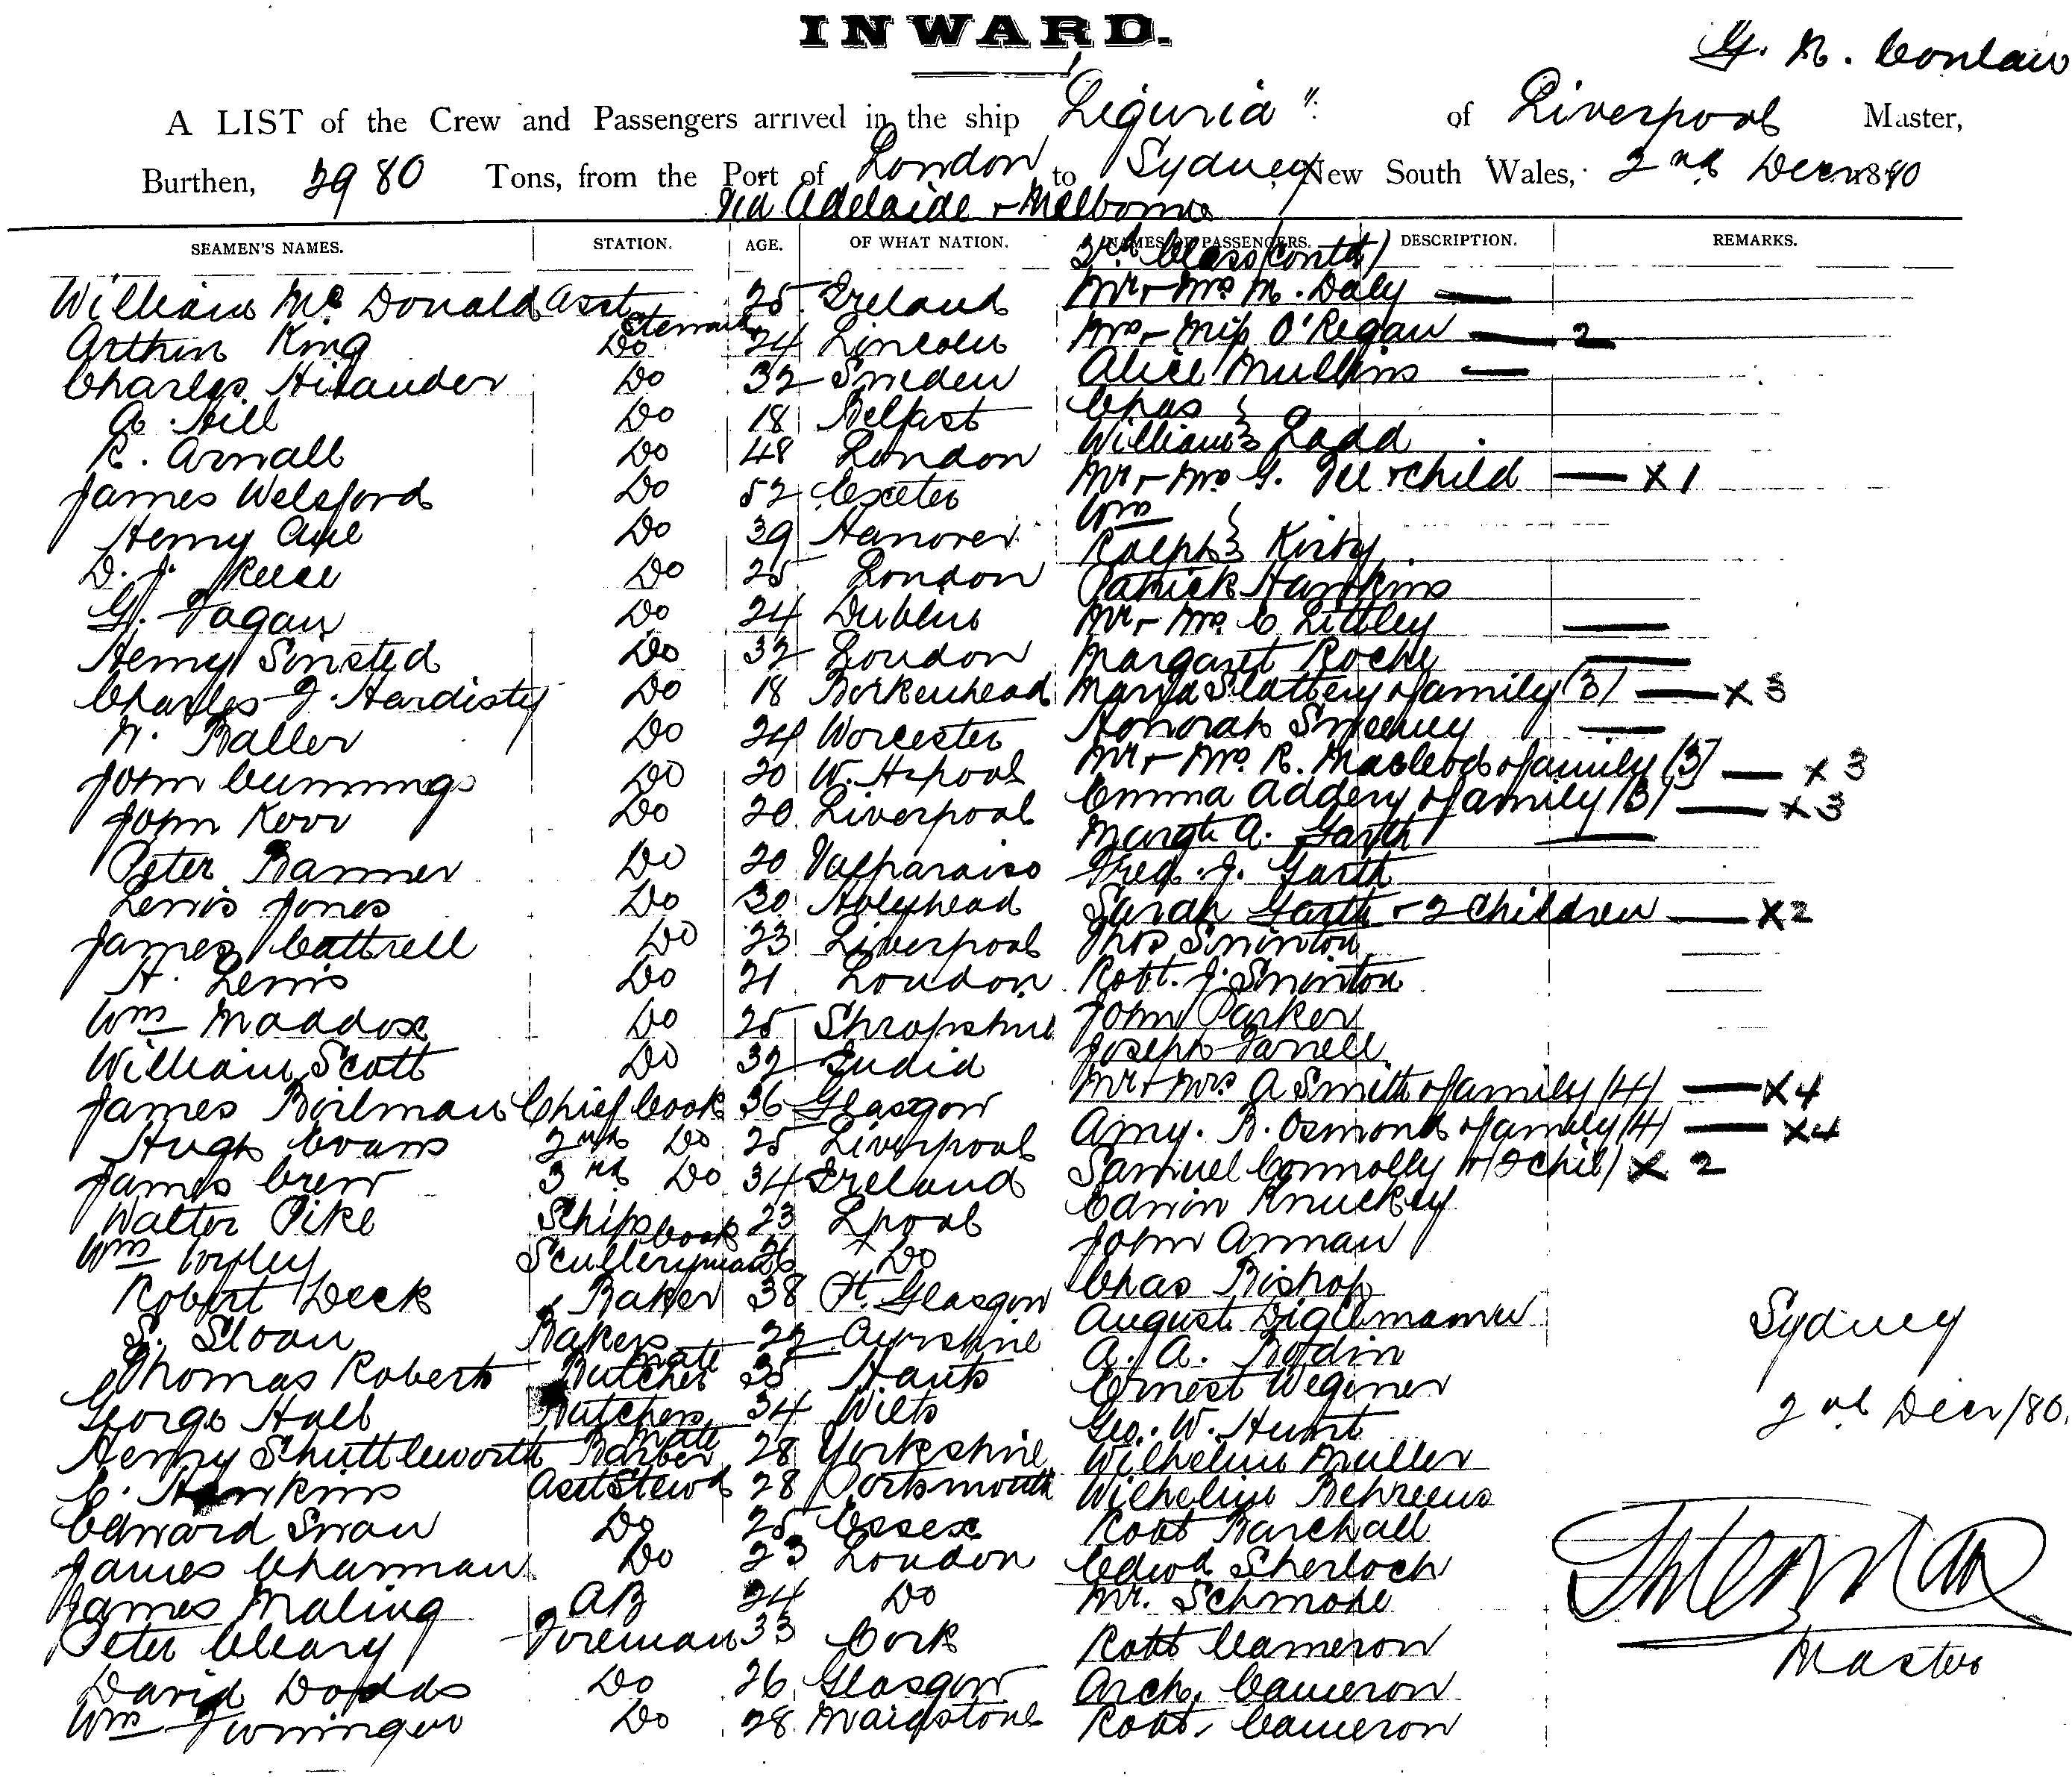 INWARD.
G. N. Conlan
A LIST of the Crew and Passengers arrived in the ship "Liguria" of Liverpool Master,
Burthen, 2980 Tons, from the Port of London to Sydney, New South Wales, 2nd Decr 1880
via Adelaide & Melbourne
SEAMEN'S NAMES. STATION. AGE. OF WHAT NATION. NAMES OF PASSENGERS. DESCRIPTION. REMARKS.
3rd Class (contd)
William McDonald Asst Steward 25 Ireland Mr & Mrs M. Daly —
Arthur King Do 24 Lincoln Mrs & Miss O'Regan — 2
Charles Hilander Do 32 Sweden Alice Mullins —
A. Hill Do 18 Belfast Chas }
R. Arnall Do 48 London William } Ladd
James Welsford Do 52 Exeter Mr & Mrs G. Tee & child — X 1
Henry Axe Do 39 Hanover Wm }
D. J. Reese Do 25 London Ralph } Kirby
G. Fagan Do 24 Dublin Patrick Hawkins
Henry Sinsted Do 32 London Mr & Mrs C Littley —
Charles J. Hardisty Do 18 Birkenhead Margaret Roche —
Maria Slattery & family (3) — X 3
N. Baller Do 24 Worcester Honorah Sweeney —
John Cummings Do 20 W. Hpool Mr & Mrs R. Macleod & family (3) — X 3
John Kerr Do 20 Liverpool Emma Addery & family (3) — X 3
Margt A. Garth —
Peter Banner Do 20 Valparaiso Fred. J. Garth
Lewis Jones Do 30 Holyhead Sarah Garth & 2 children — X 2
James Cattrell Do 23 Liverpool Thos Swinton
H. Lewis Do 21 London Robt. J. Swinton
Wm Maddox Do 25 Shropshire John Parker
William Scott Do 32 India Joseph Farrell
James Boilman Chief Cook 36 Glasgow Mr & Mrs A Smith & family (4) — X 4
Hugh Evans 2nd Do 25 Liverpool Amy. B. Osmond & family (4) — X 4
James Crew 3rd Do 34 Ireland Samuel Connolly & (2 chil) X 2
Walter Pike Ships Cook 23 Lpool Edwin Knuckey
Wm Sculleryman 26 Do John Arman
Robert Deck Baker 38 Pt. Glasgow Chas Bishop
S. Sloan Bakers Mate 22 Ayrshire August
Thomas Roberts Butcher 35 Hants A. A. Bodin
George Hall Butchers Mate 34 Wilts Ernest Wegener
Henry Shuttleworth Barber 28 Yorkshire Geo. W. Hunt
C. Hawkins Asst Stewd 28 Portsmouth Wilhelm Muller
Edward Swan Do 25 Essex Wilhelm Behrens
James Charman Do 23 London Robt Barchall
James Maling AB 24 Do Edwd Sherloch
Peter Cleary Foreman 33 Cork Mr. Schmohl
David Dodds Do 26 Glasgow Robt Cameron
Wm Do 28 Maidstone Arch. Cameron
Robt. Cameron
Sydney
2nd Decr/80.
Master